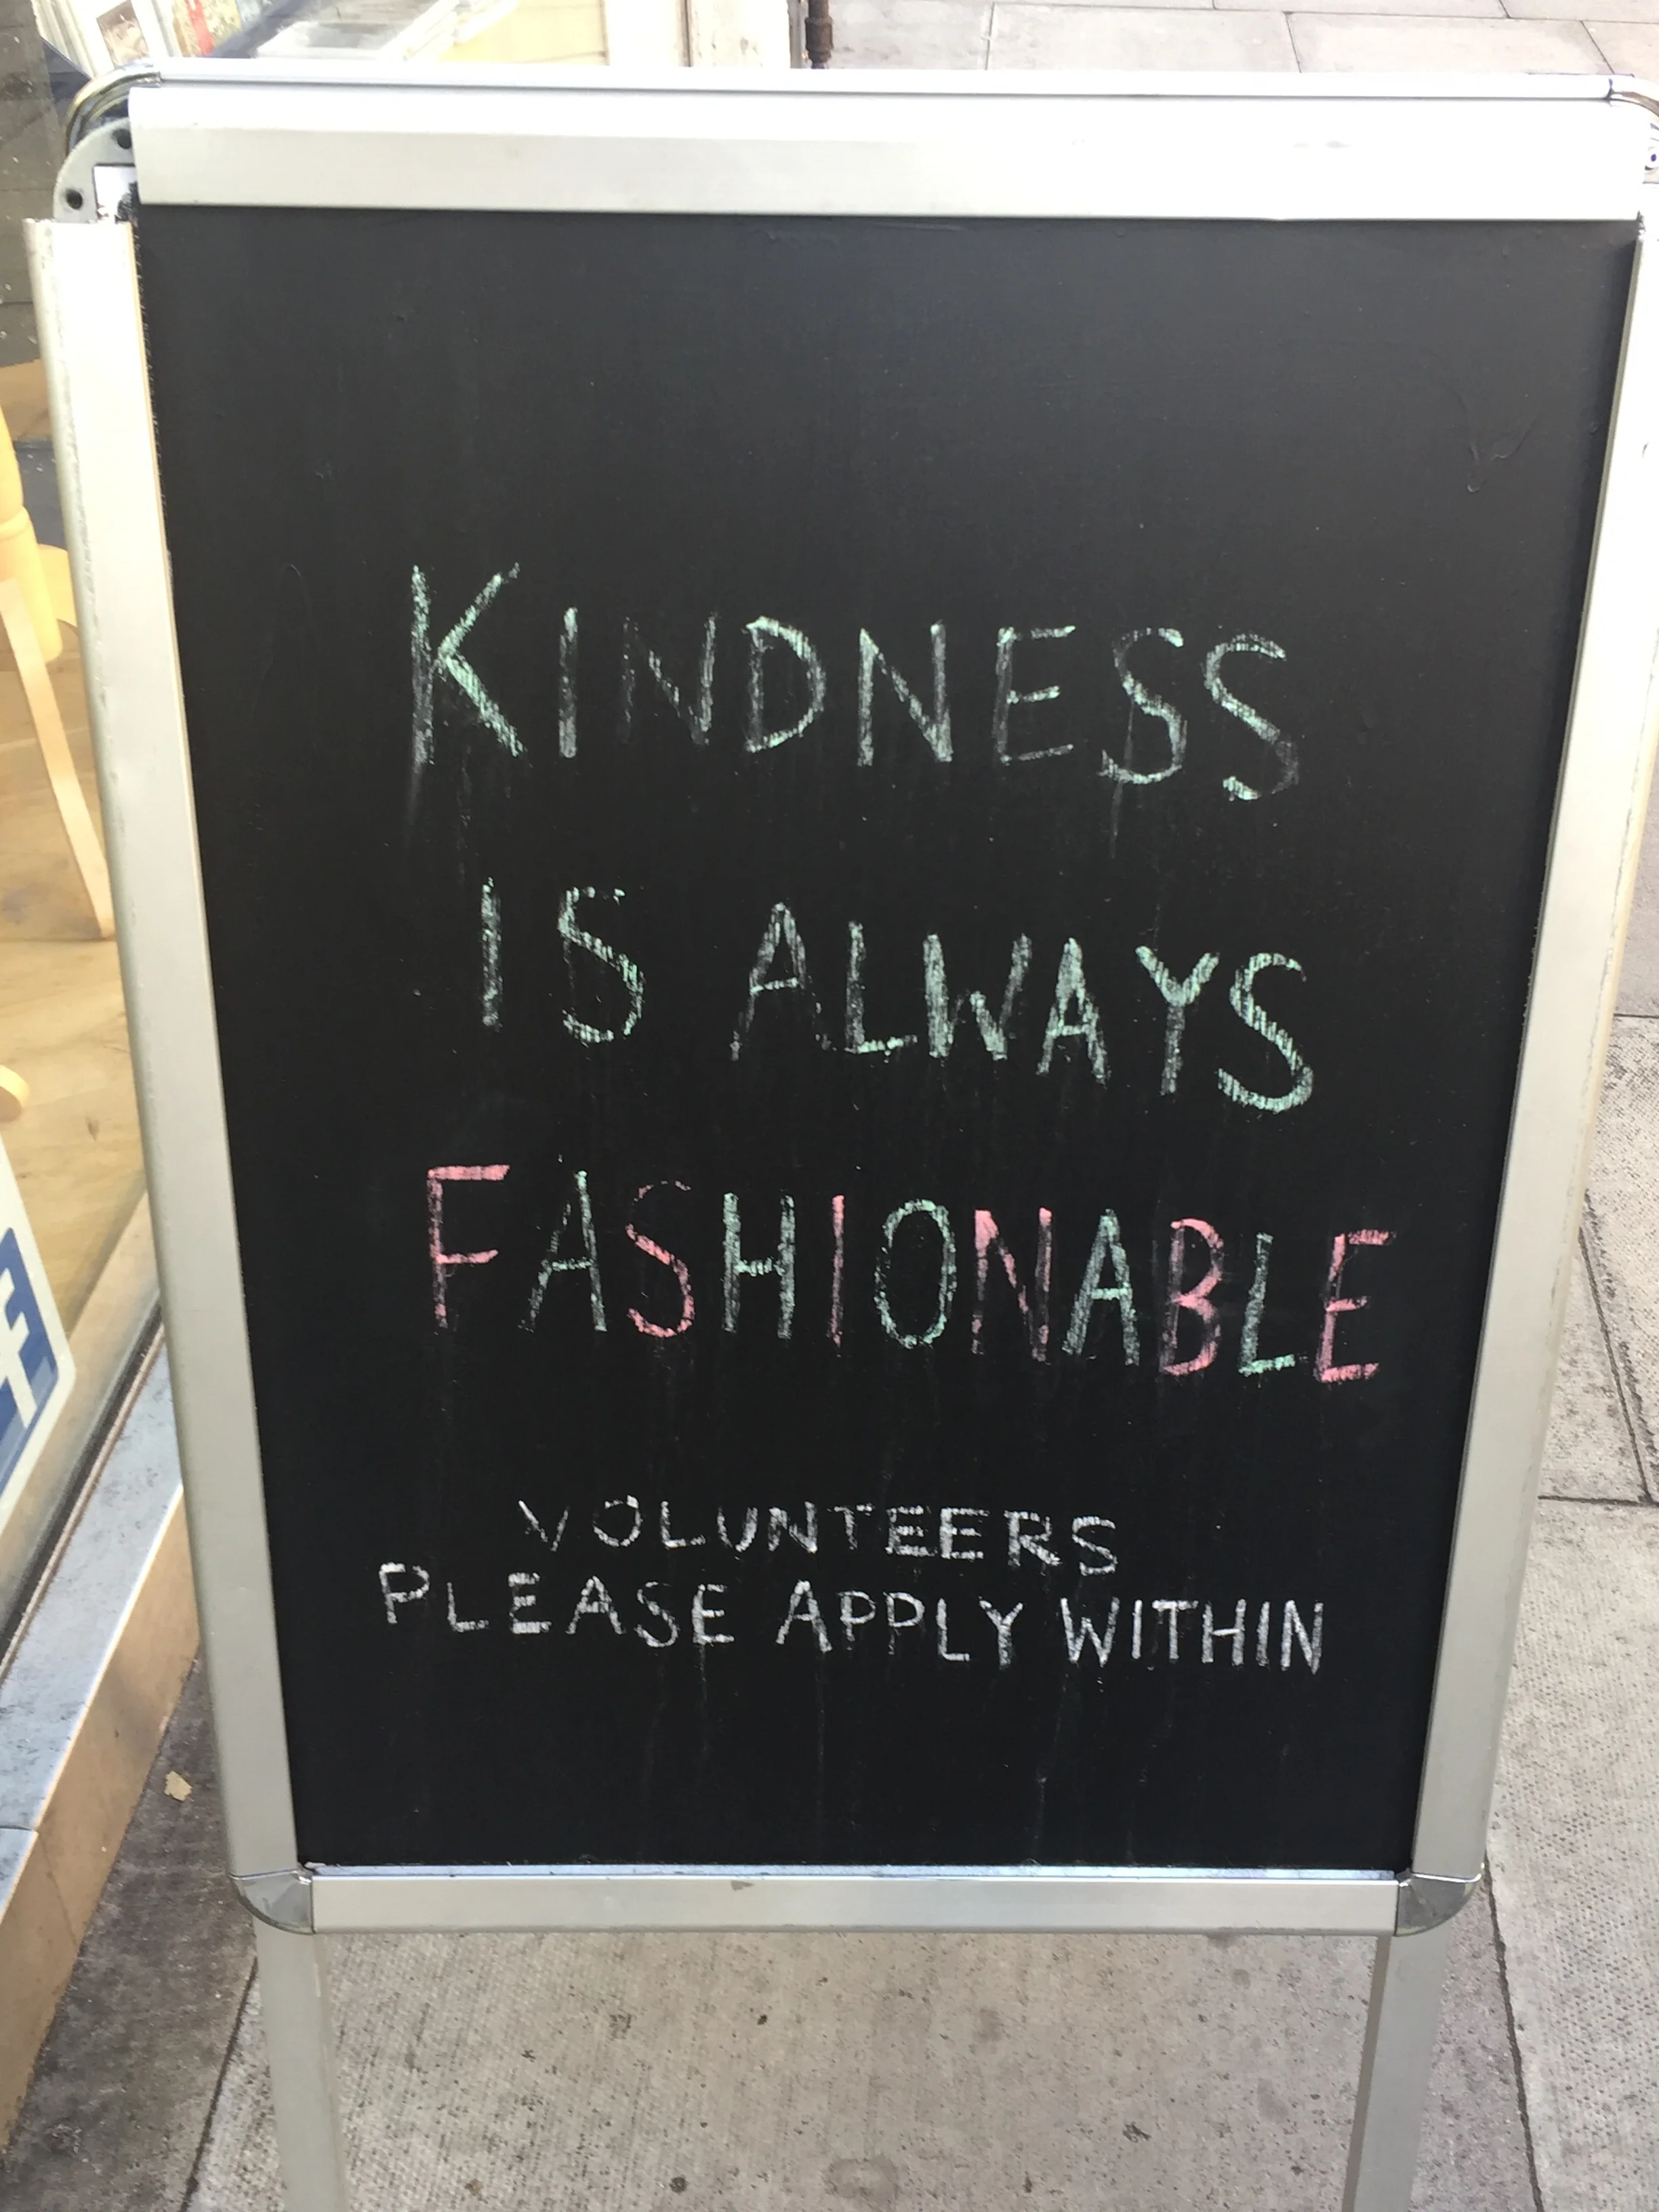 KINDNESS
IS ALWAYS
FASHIONABLE
VOLUNTEERS
PLEASE APPLY WITHIN